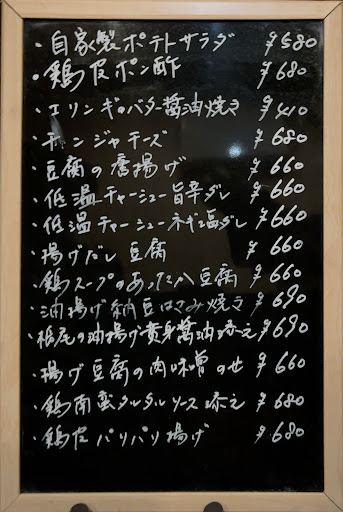 ・自家製ポテトサラダ ¥580
・鶏皮ポン酢 ¥680
・エリンギのバター醤油焼き ¥410
・チャンジャチーズ ¥680
・豆腐の唐揚げ ¥660
・低温チャーシュー旨辛ダレ ¥660
・低温チャーシューネギ塩ダレ ¥660
・揚げだし豆腐 ¥660
・鶏スープのあったか豆腐 ¥660
・油揚げ納豆はさみ焼き ¥690
・栃尾の油揚げ黄身醤油添え ¥690
・揚げ豆腐の肉味噌のせ ¥660
・鶏南蛮タルタルソース添え ¥680
・鶏皮パリパリ揚げ ¥680